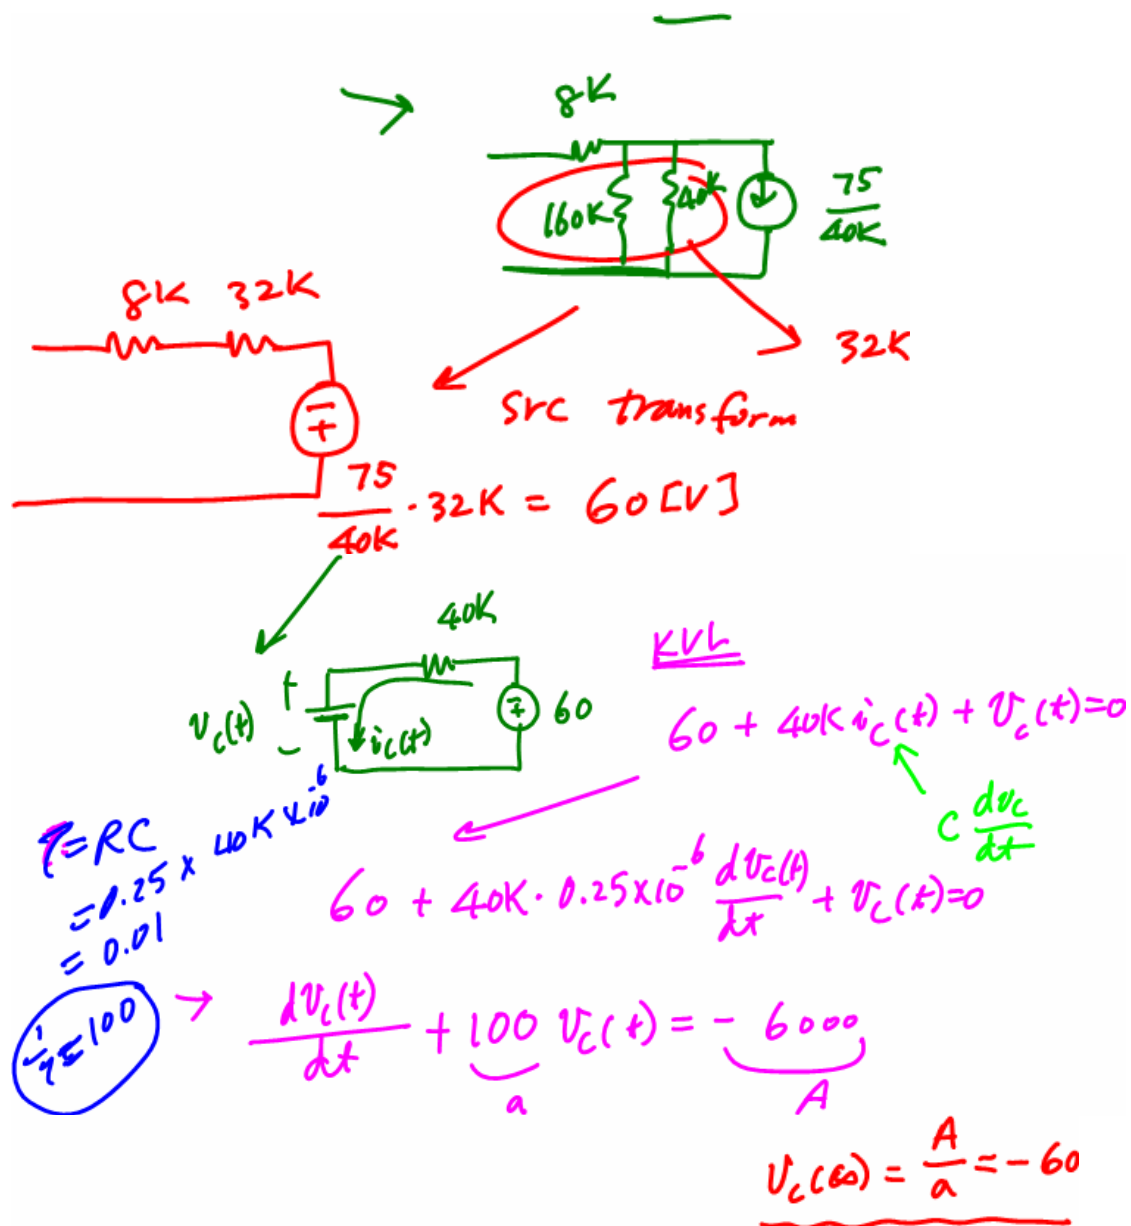 8K
160K 40K 75/40K
8K 32K
32K
src transform
75/40K · 32K = 60 [V]
40K
KVL
v_c(t) + − i_c(t) − + 60
60 + 40K i_c(t) + v_c(t) = 0
C dv_c/dt
τ = RC
= 0.25 × 40K × 10^-6
= 0.01
60 + 40K · 0.25×10^-6 dv_c(t)/dt + v_c(t) = 0
1/τ = 100
dv_c(t)/dt + 100 v_c(t) = - 6000
a A
v_c(∞) = A/a = -60